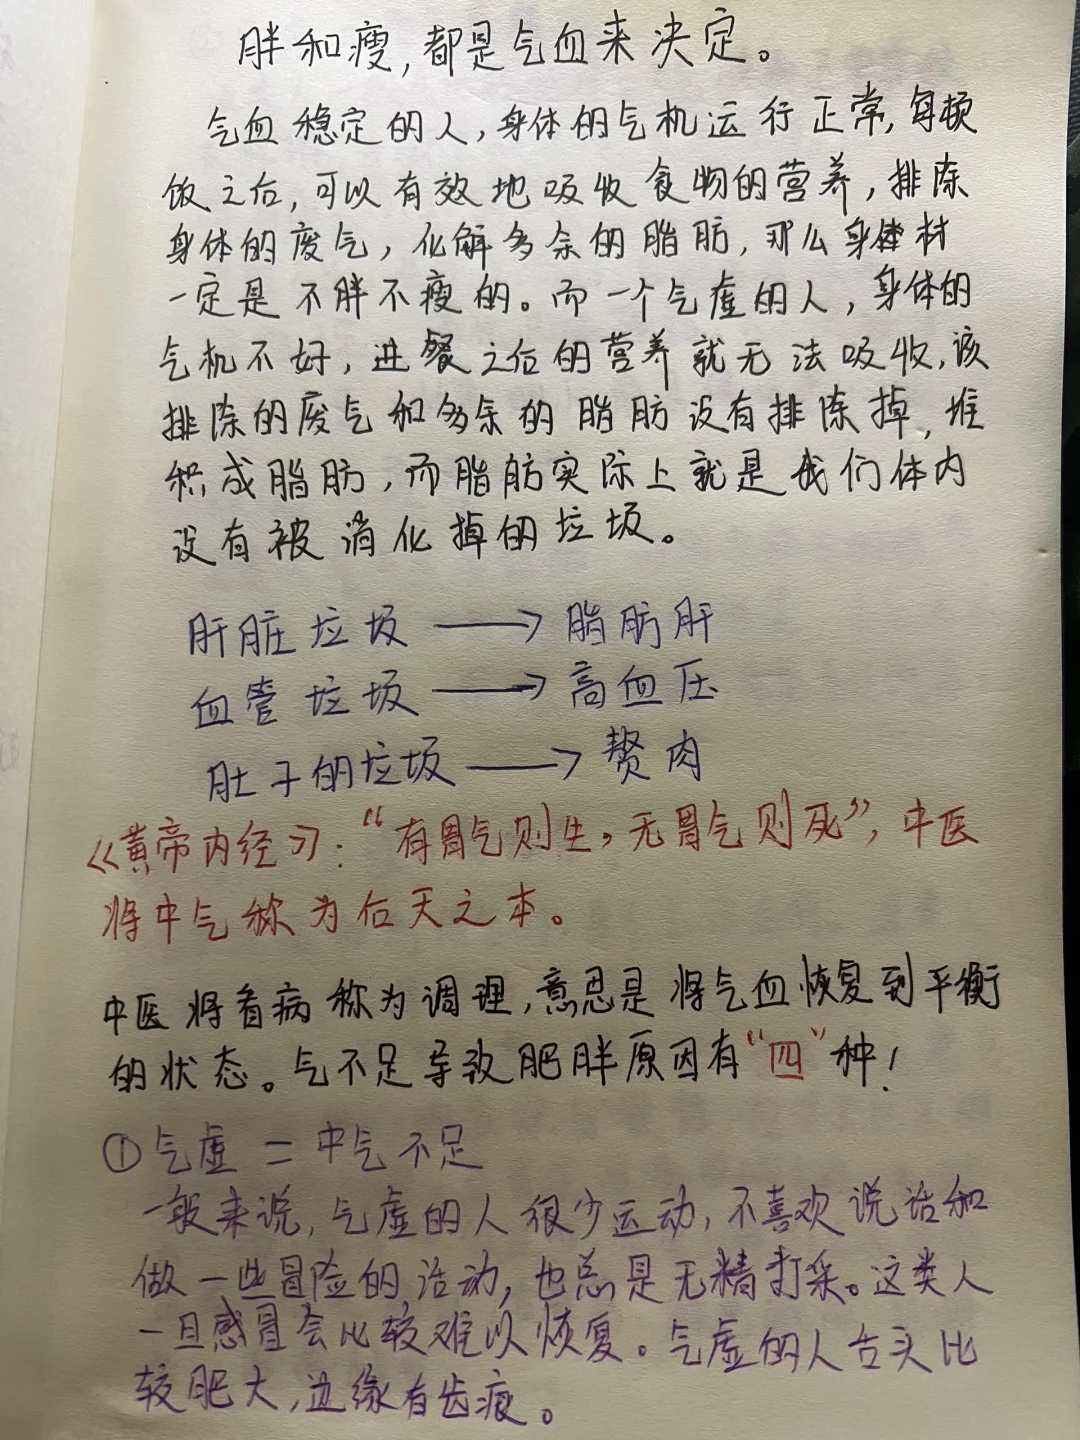 胖和瘦，都是气血来决定。
气血稳定的人，身体的气机运行正常，每顿
饭之后，可以有效地吸收食物的营养，排除
身体的废气，化解多余的脂肪，那么身体材
一定是不胖不瘦的。而一个气虚的人，身体的
气机不好，进餐之后的营养就无法吸收，该
排除的废气和多余的脂肪没有排除掉，堆
积成脂肪，而脂肪实际上就是我们体内
没有被消化掉的垃圾。
肝脏垃圾 → 脂肪肝
血管垃圾 → 高血压
肚子的垃圾 → 赘肉
《黄帝内经》：“有胃气则生，无胃气则死”，中医
将中气称为后天之本。
中医将看病称为调理，意思是将气血恢复到平衡
的状态。气不足导致肥胖原因有“四”种！
①气虚=中气不足
一般来说，气虚的人很少运动，不喜欢说话和
做一些冒险的活动，也总是无精打采。这类人
一旦感冒会比较难以恢复。气虚的人舌头比
较肥大，边缘有齿痕。